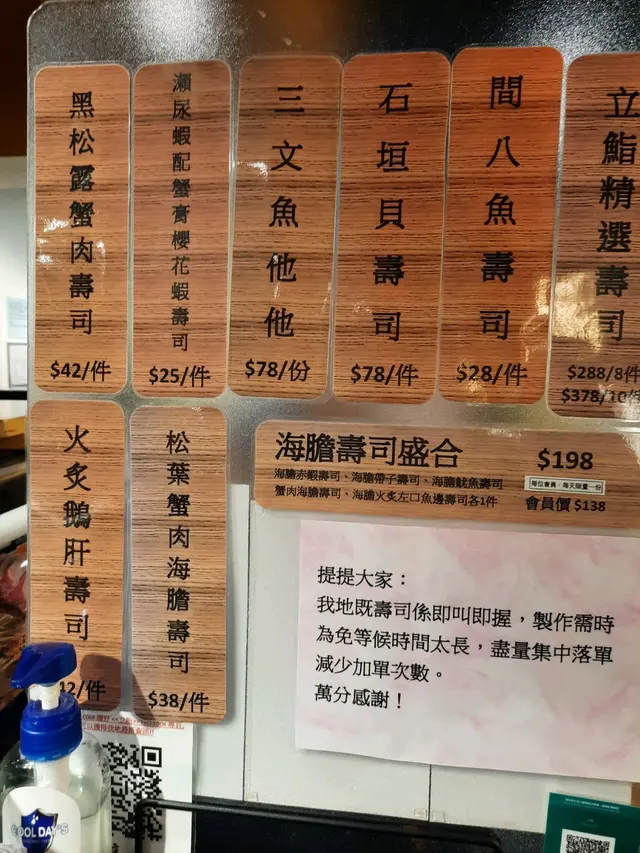 黑松露蟹肉壽司
$42/件
瀨尿蝦配蟹膏櫻花蝦壽司
$25/件
三文魚他他
$78/份
石垣貝壽司
$78/件
間八魚壽司
$28/件
立鮨精選壽司
$288/8件
$378/10件
火炙鵝肝壽司
42/件
松葉蟹肉海膽壽司
$38/件
海膽壽司盛合
$198
海膽赤蝦壽司、海膽帶子壽司、海膽魷魚壽司
蟹肉海膽壽司、海膽火炙左口魚邊壽司各1件
每位會員，每天限量一份
會員價 $138
提提大家：
我地既壽司係即叫即握，製作需時
為免等候時間太長，盡量集中落單
減少加單次數。
萬分感謝！
COOL DAY'S